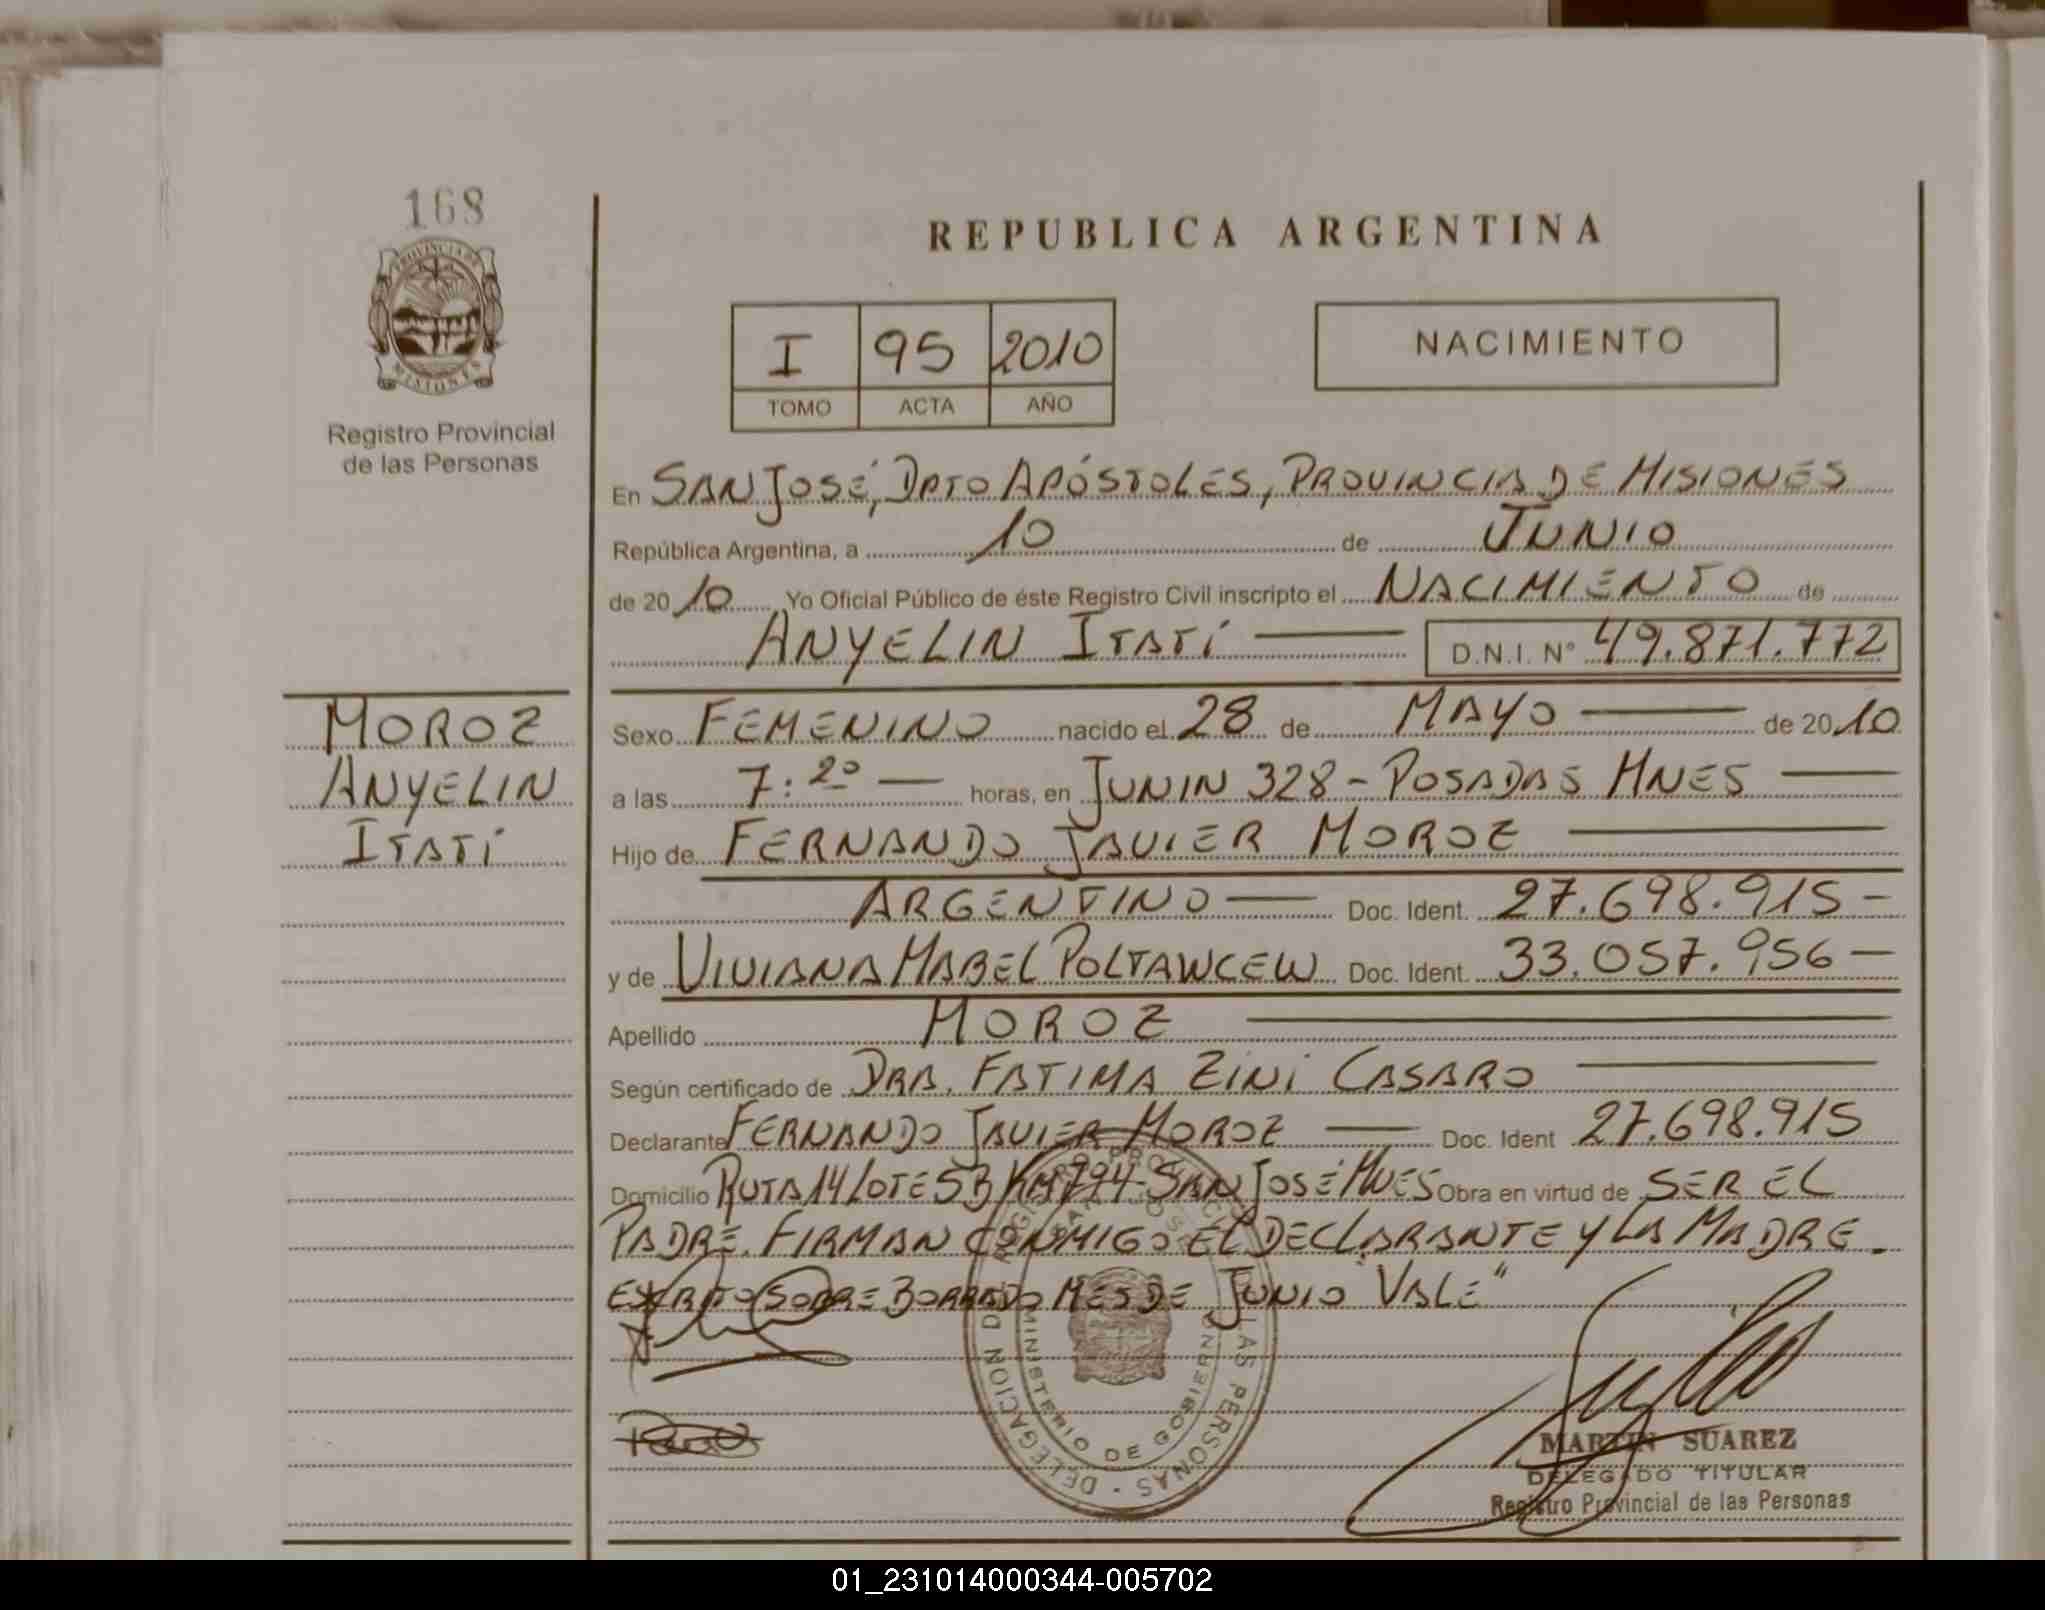 168
PROVINCIA DE
MISIONES
Registro Provincial
de las Personas
MOROZ
ANYELIN
ITATÍ
REPUBLICA ARGENTINA
I 95 2010
TOMO ACTA AÑO
NACIMIENTO
En SAN JOSÉ, DPTO APÓSTOLES, PROVINCIA DE MISIONES
República Argentina, a 10 de JUNIO
de 20 10 Yo Oficial Público de éste Registro Civil inscripto el NACIMIENTO de
ANYELIN ITATÍ D.N.I. N° 49.871.772
Sexo FEMENINO nacido el 28 de MAYO de 20 10
a las 7:20 horas, en JUNIN 328 - POSADAS MNES
Hijo de FERNANDO JAVIER MOROZ
ARGENTINO Doc. Ident. 27.698.915 -
y de VIVIANA MABEL POLTAWCEW Doc. Ident. 33.057.956 -
Apellido MOROZ
Según certificado de DRA. FATIMA ZINI CASARO
Declarante FERNANDO JAVIER MOROZ Doc. Ident 27.698.915
Domicilio RUTA 14 LOTE 53 KM 794 - SAN JOSÉ MNES Obra en virtud de SER EL
PADRE. FIRMAN CONMIGO EL DECLARANTE Y LA MADRE.
ESCRITO SOBRE BORRADO MES DE JUNIO "VALE"
DELEGACION DE REGISTRO PROVINCIAL DE LAS PERSONAS
SAN JOSE
MINISTERIO DE GOBIERNO
MARTIN SUAREZ
DELEGADO TITULAR
Registro Provincial de las Personas
01_231014000344-005702